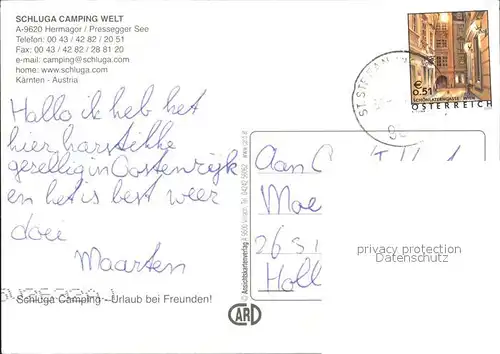 SCHLUGA CAMPING WELT
A-9620 Hermagor / Pressegger See
Telefon: 00 43 / 42 82 / 20 51
Fax: 00 43 / 42 82 / 28 81 20
e-mail: camping@schluga.com
home: www.schluga.com
Kärnten - Austria
Hallo ik heb het
hier harstikke
gesellig in Oostenrijk
en het is best weer
doei
Maarten
Schluga Camping - Urlaub bei Freunden!
© Ansichtskartenverlag
CARD
€ 0.51
SCHÖNLATERNGASSE, WIEN
ÖSTERREICH
Aan
Moe
26 51
Holl
privacy protection
Datenschutz